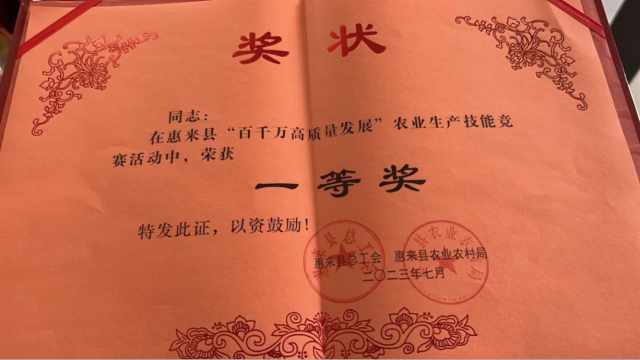 奖状
同志：
在惠来县“百千万高质量发展”农业生产技能竞
赛活动中，荣获
一等奖
特发此证，以资鼓励！
惠来县总工会 惠来县农业农村局
二〇二三年七月
惠来县总工会
惠来县农业农村局